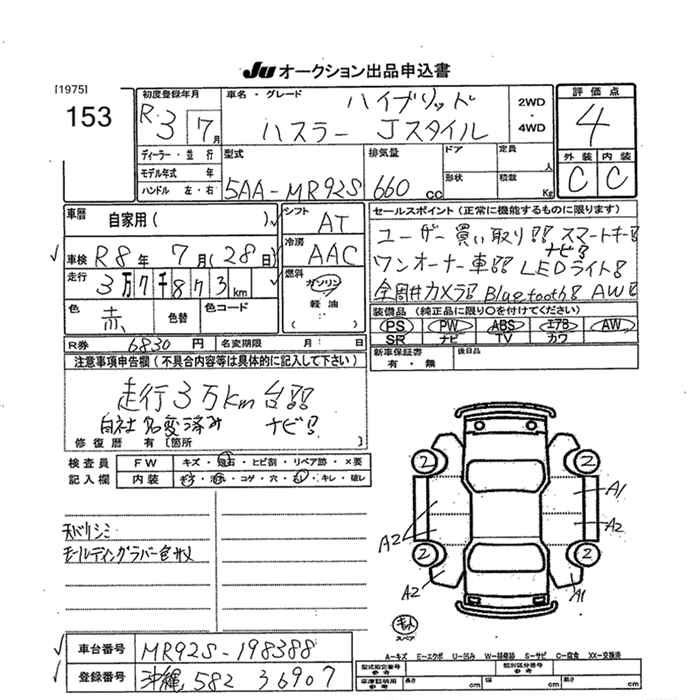 JU オークション出品申込書
[1975]
153
初度登録年月
R 3 / 7月
車名・グレード
ハイブリッド
ハスラー Jスタイル
2WD
・
4WD
評価点
4
外装 内装
C C
ディーラー・並行
モデル年式 年
ハンドル 左・右
型式
5AA-MR92S
排気量
660 cc
ドア
形状
定員 人
積載 Kg
車歴 自家用( )
車検 R8年 7月(28日)
走行 3万7千873km
色 赤 色替 色コード
シフト AT
冷房 AAC
燃料 ガソリン
軽油
( )
セールスポイント(正常に機能するものに限ります)
ユーザー買い取り!! スマートキー!
ナビ!
ワンオーナー車!! LEDライト!
全周囲カメラ! Bluetooth! AW!
装備品(純正品に限り○を付けてください)
PS PW ABS エアB AW
SR ナビ TV カワ
新車保証書 有・無 後日品
R券 6830円 名変期限 月 : 日
注意事項申告欄(不具合内容等は具体的に記入して下さい)
走行3万km台!!
自社名変済み ナビ!
修復歴 有[箇所 ]
検査員 FW キズ・飛石・ヒビ割・リペア跡・×要
記入欄 内装 キズ・汚れ・コゲ・穴・スレ・キレ・破レ
天バリシミ
モールディングラバー色サメ
2 2
A1
A2
A2
2 2
A2 A1
スペア
A-キズ E-エクボ U-凹み W-補修跡 S-サビ C-腐食 XX-交換済
車台番号 MR92S-198388
登録番号 沖縄 582 う 6907
型式指定番号 参考 類別区分番号 参考
車庫証明用 参考 長さ cm 幅 cm 高さ cm